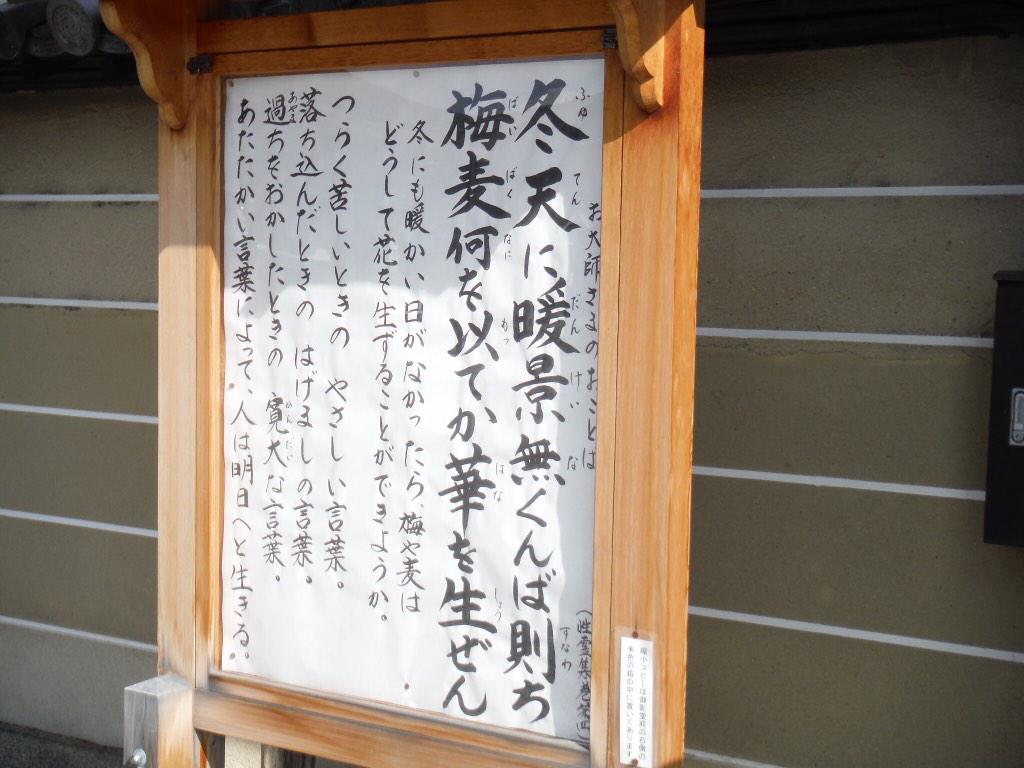 お大師さまのおことば
冬天に暖景無くんば則ち
梅麦何を以てか華を生ぜん
(性霊集・巻第四)
冬にも暖かい日がなかったら、梅や麦は
どうして花を生ずることができようか。
つらく苦しいときの やさしい言葉。
落ち込んだときの はげましの言葉。
過ちをおかしたときの 寛大な言葉。
あたたかい言葉によって、人は明日へと生きる。
縮小コピーは御影堂前の右側の
茶色の箱の中に置いてあります